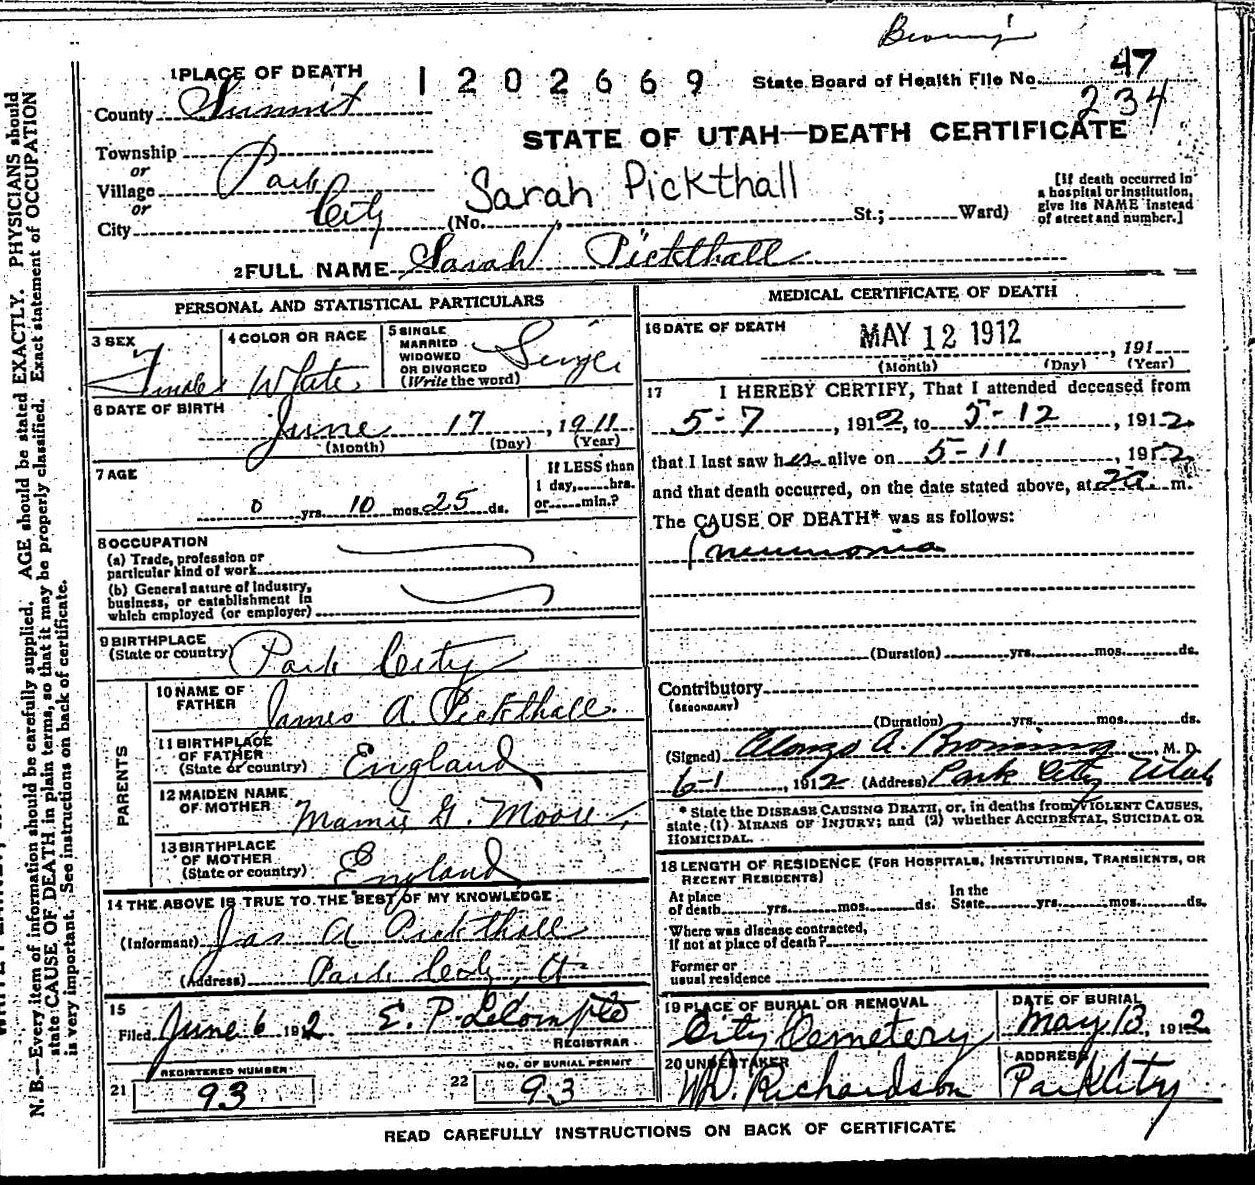 Browning
1 PLACE OF DEATH 1202669 State Board of Health File No. 47
234
County Summit
STATE OF UTAH—DEATH CERTIFICATE
Township
or
Village Park
or
City City (No. , St.; Ward)
Sarah Pickthall
[If death occurred in
a hospital or institution,
give its NAME instead
of street and number.]
2 FULL NAME Sarah Pickthall
PERSONAL AND STATISTICAL PARTICULARS
3 SEX
Female
4 COLOR OR RACE
White
5 SINGLE
MARRIED
WIDOWED
OR DIVORCED
(Write the word)
Single
6 DATE OF BIRTH
June 17, 1911
(Month) (Day) (Year)
7 AGE
0 yrs. 10 mos. 25 ds.
If LESS than
1 day, hrs.
or min.?
8 OCCUPATION
(a) Trade, profession or
particular kind of work
(b) General nature of industry,
business, or establishment in
which employed (or employer)
9 BIRTHPLACE
(State or country) Park City
PARENTS
10 NAME OF
FATHER
James A. Pickthall
11 BIRTHPLACE
OF FATHER
(State or country) England
12 MAIDEN NAME
OF MOTHER
Mamie G. Moore
13 BIRTHPLACE
OF MOTHER
(State or country) England
14 THE ABOVE IS TRUE TO THE BEST OF MY KNOWLEDGE
(Informant) Jas A Pickthall
(Address) Park City, Ut
15
Filed June 6 1912 E. P. LeCompte
REGISTRAR
21 REGISTERED NUMBER
93
22 NO. OF BURIAL PERMIT
93
MEDICAL CERTIFICATE OF DEATH
16 DATE OF DEATH
MAY 12 1912, 191
(Month) (Day) (Year)
17 I HEREBY CERTIFY, That I attended deceased from
5-7, 1912, to 5-12, 1912
that I last saw her alive on 5-11, 1912
and that death occurred, on the date stated above, at 2a m.
The CAUSE OF DEATH* was as follows:
Pneumonia
(Duration) yrs. mos. ds.
Contributory
(SECONDARY)
(Duration) yrs. mos. ds.
(Signed) Alonzo A. Browning, M. D.
6-1, 1912 (Address) Park City Utah
* State the DISEASE CAUSING DEATH, or, in deaths from VIOLENT CAUSES,
state (1) MEANS OF INJURY; and (2) whether ACCIDENTAL, SUICIDAL OR
HOMICIDAL.
18 LENGTH OF RESIDENCE (FOR HOSPITALS, INSTITUTIONS, TRANSIENTS, OR
RECENT RESIDENTS)
At place
of death yrs. mos. ds.
In the
State yrs. mos. ds.
Where was disease contracted,
if not at place of death?
Former or
usual residence
19 PLACE OF BURIAL OR REMOVAL
City Cemetery
DATE OF BURIAL
May 13 1912
20 UNDERTAKER
Richardson
ADDRESS
Park City
READ CAREFULLY INSTRUCTIONS ON BACK OF CERTIFICATE
N. B.—Every item of information should be carefully supplied. AGE should be stated EXACTLY. PHYSICIANS should
state CAUSE OF DEATH in plain terms, so that it may be properly classified. Exact statement of OCCUPATION
is very important. See instructions on back of certificate.